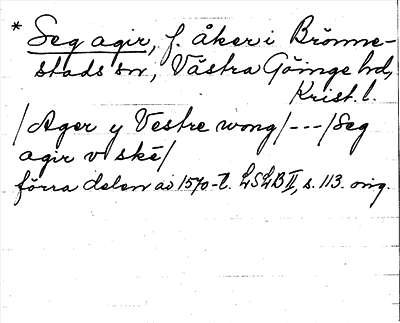 * Seg agir, f. åker i Brönne-
stads sn, Västra Göinge hd,
Krist. l.
/Ager y Vestre wong/---/Seg
agir v ské/
förra delen av 1570-t. LSLB II, s. 113. orig.